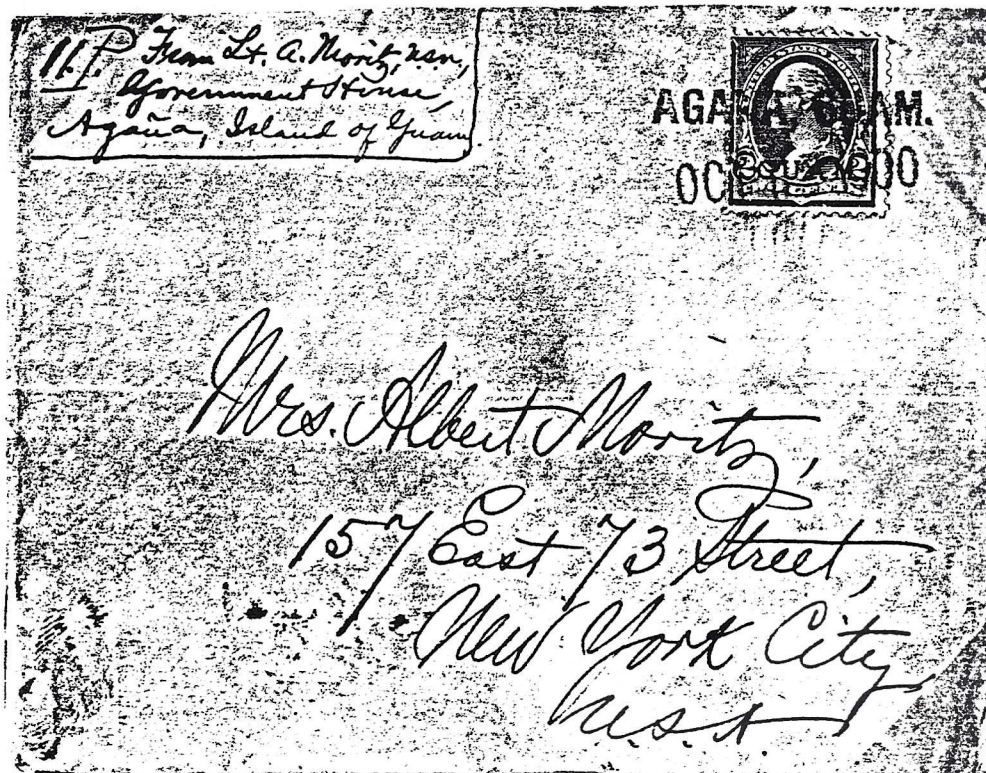 11.P. From Lt. A. Moritz, usn,
Government House,
Agaña, Island of Guam
AGANA, GUAM.
OC 1900
Mrs. Albert Moritz,
157 East 73 Street,
New York City,
U.S.A.